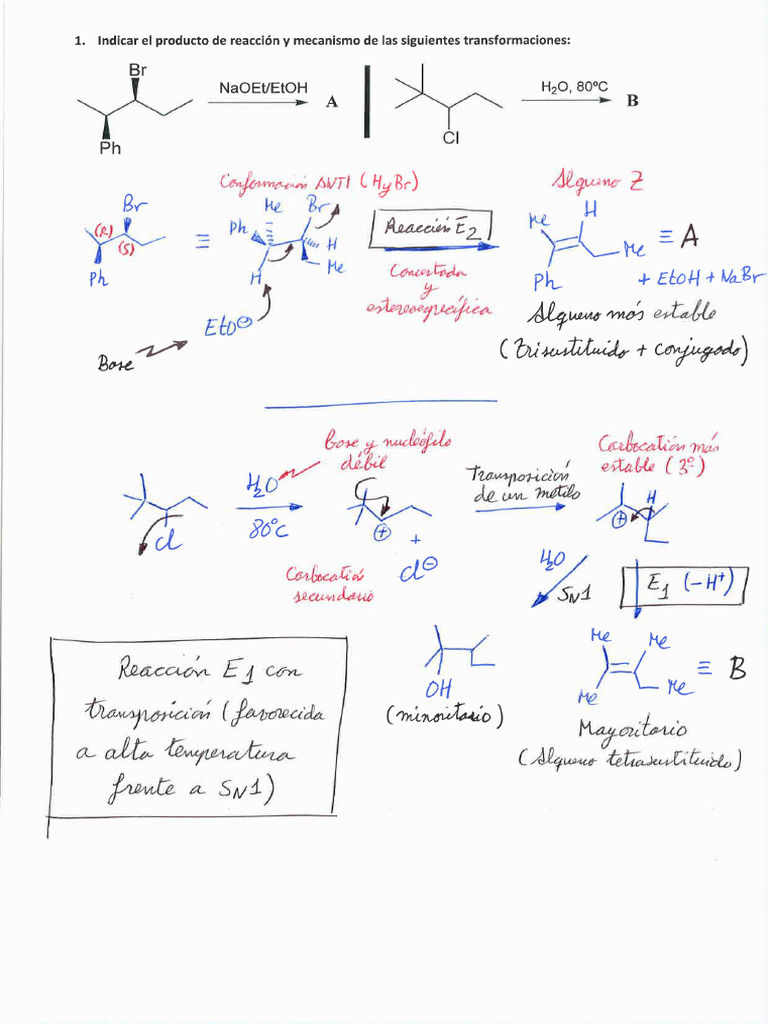 1. Indicar el producto de reacción y mecanismo de las siguientes transformaciones:
Br
NaOEt/EtOH
A
Ph
H2O, 80ºC
B
Cl
Conformación ANTI (H y Br)
Alqueno Z
Br
(R)
(S)
Ph
≡
Me
Br
Ph
H
Me
H
EtO⊖
Base
Reacción E2
Concertada
y
estereoespecífica
Me
H
Me
Ph
≡ A
+ EtOH + NaBr
Alqueno más estable
(Trisustituido + conjugado)
Base y nucleófilo
débil
Carbocatión más
estable (3º)
Cl
H2O
80ºC
⊕
+
Cl⊖
Carbocatión
secundario
Transposición
de un metilo
H
⊕
H2O
SN1
E1 (-H+)
OH
(minoritario)
Me
Me
Me
Me
≡ B
Mayoritario
(Alqueno tetrasustituido)
Reacción E1 con
transposición (favorecida
a alta temperatura
frente a SN1)